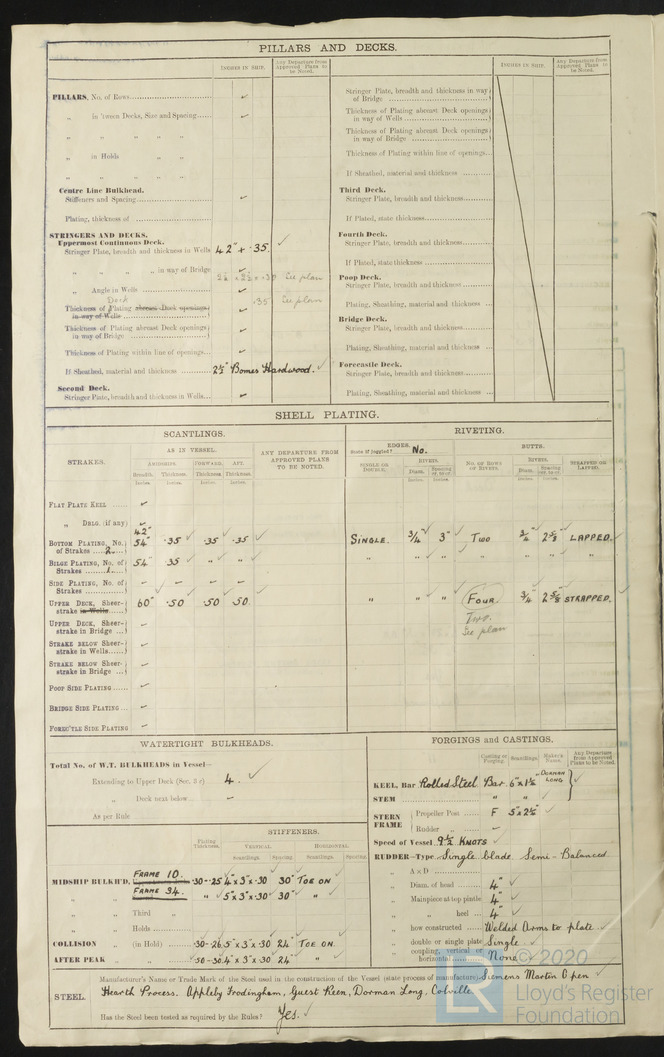 PILLARS AND DECKS.
INCHES IN SHIP.
Any Departure from Approved Plans to be Noted.
INCHES IN SHIP.
Any Departure from Approved Plans to be Noted.
PILLARS, No. of Rows
„ in 'tween Decks, Size and Spacing
„ „ „ „ „
„ in Holds „ „
„ „ „ „
Centre Line Bulkhead.
Stiffeners and Spacing
Plating, thickness of
STRINGERS AND DECKS.
Uppermost Continuous Deck.
Stringer Plate, breadth and thickness in Wells 42" + .35. ✓
„ „ „ „ in way of Bridge
See plan
„ Angle in Wells
Deck .35 See plan
Thickness of Plating abreast Deck openings in way of Wells
Thickness of Plating abreast Deck openings in way of Bridge
Thickness of Plating within line of openings
If Sheathed, material and thickness 2½" Hardwood. ✓
Second Deck.
Stringer Plate, breadth and thickness in Wells
Stringer Plate, breadth and thickness in way of Bridge
Thickness of Plating abreast Deck openings in way of Wells
Thickness of Plating abreast Deck openings in way of Bridge
Thickness of Plating within line of openings
If Sheathed, material and thickness
Third Deck.
Stringer Plate, breadth and thickness
If Plated, state thickness
Fourth Deck.
Stringer Plate, breadth and thickness
If Plated, state thickness
Poop Deck.
Stringer Plate, breadth and thickness
Plating, Sheathing, material and thickness
Bridge Deck.
Stringer Plate, breadth and thickness
Plating, Sheathing, material and thickness
Forecastle Deck.
Stringer Plate, breadth and thickness
Plating, Sheathing, material and thickness
SHELL PLATING.
SCANTLINGS.
RIVETING.
STRAKES.
AS IN VESSEL.
ANY DEPARTURE FROM APPROVED PLANS TO BE NOTED.
AMIDSHIPS. FORWARD. AFT.
Breadth. Thickness. Thickness. Thickness.
Inches. Inches. Inches. Inches.
EDGES.
State if joggled? No.
BUTTS.
SINGLE OR DOUBLE.
RIVETS.
Diam. Spacing
Inches. Inches.
NO. OF ROWS OF RIVETS.
RIVETS.
Diam. Spacing
Inches. Inches.
STRAPPED OR LAPPED.
FLAT PLATE KEEL
„ DBLG. (if any)
42"
BOTTOM PLATING, No. of Strakes 2 54" .35 .35 .35 SINGLE. ¾" 3" TWO ¾" 2⅝ LAPPED.
BILGE PLATING, No. of Strakes 1 54" 35 „ „ „ „ „ „ „ „ „
SIDE PLATING, No. of Strakes
UPPER DECK, Sheer-strake in Wells 60" .50 .50 .50. „ „ „ FOUR ¾" 2⅝ STRAPPED.
Two.
See plan
UPPER DECK, Sheer-strake in Bridge
STRAKE BELOW Sheer-strake in Wells
STRAKE BELOW Sheer-strake in Bridge
POOP SIDE PLATING
BRIDGE SIDE PLATING
FOREC'TLE SIDE PLATING
WATERTIGHT BULKHEADS.
Total No. of W.T. BULKHEADS in Vessel—
Extending to Upper Deck (Sec. 3 c) 4. ✓
„ Deck next below
As per Rule
Plating Thickness.
STIFFENERS.
VERTICAL. HORIZONTAL.
Scantlings. Spacing. Scantlings. Spacing.
MIDSHIP BULKH'D, FRAME 10. .30-25 4"x3"x.30 30" TOE ON
„ „ FRAME 34. „ 5"x3"x.30 30" „
„ „ Third „
„ „ Holds
COLLISION „ (in Hold) .30-26 5"x3"x.30 24" TOE ON.
AFTER PEAK „ „ .50-30 4"x3"x.30 24" „
FORGINGS and CASTINGS.
Casting or Forging. Scantlings. Maker's Name. Any Departure from Approved Plans to be Noted.
KEEL, Bar Rolled Steel Bar 6"x1½ DORMAN LONG
STEM „ „
STERN FRAME
Propeller Post F 5"x2½"
Rudder „
Speed of Vessel 9½ KNOTS
RUDDER—Type Single blade Semi-Balanced
„ A × D
„ Diam. of head 4"
„ Mainpiece at top pintle 4"
„ „ heel 4"
„ how constructed Welded Arms to plate.
„ double or single plate Single
„ coupling, vertical or horizontal None
STEEL.
Manufacturer's Name or Trade Mark of the Steel used in the construction of the Vessel (state process of manufacture) Siemens Martin Open
Hearth Process. Appleby Frodingham, Guest Keen, Dorman Long. Colville.
Has the Steel been tested as required by the Rules? Yes.
© 2020
LR
Lloyd's Register
Foundation